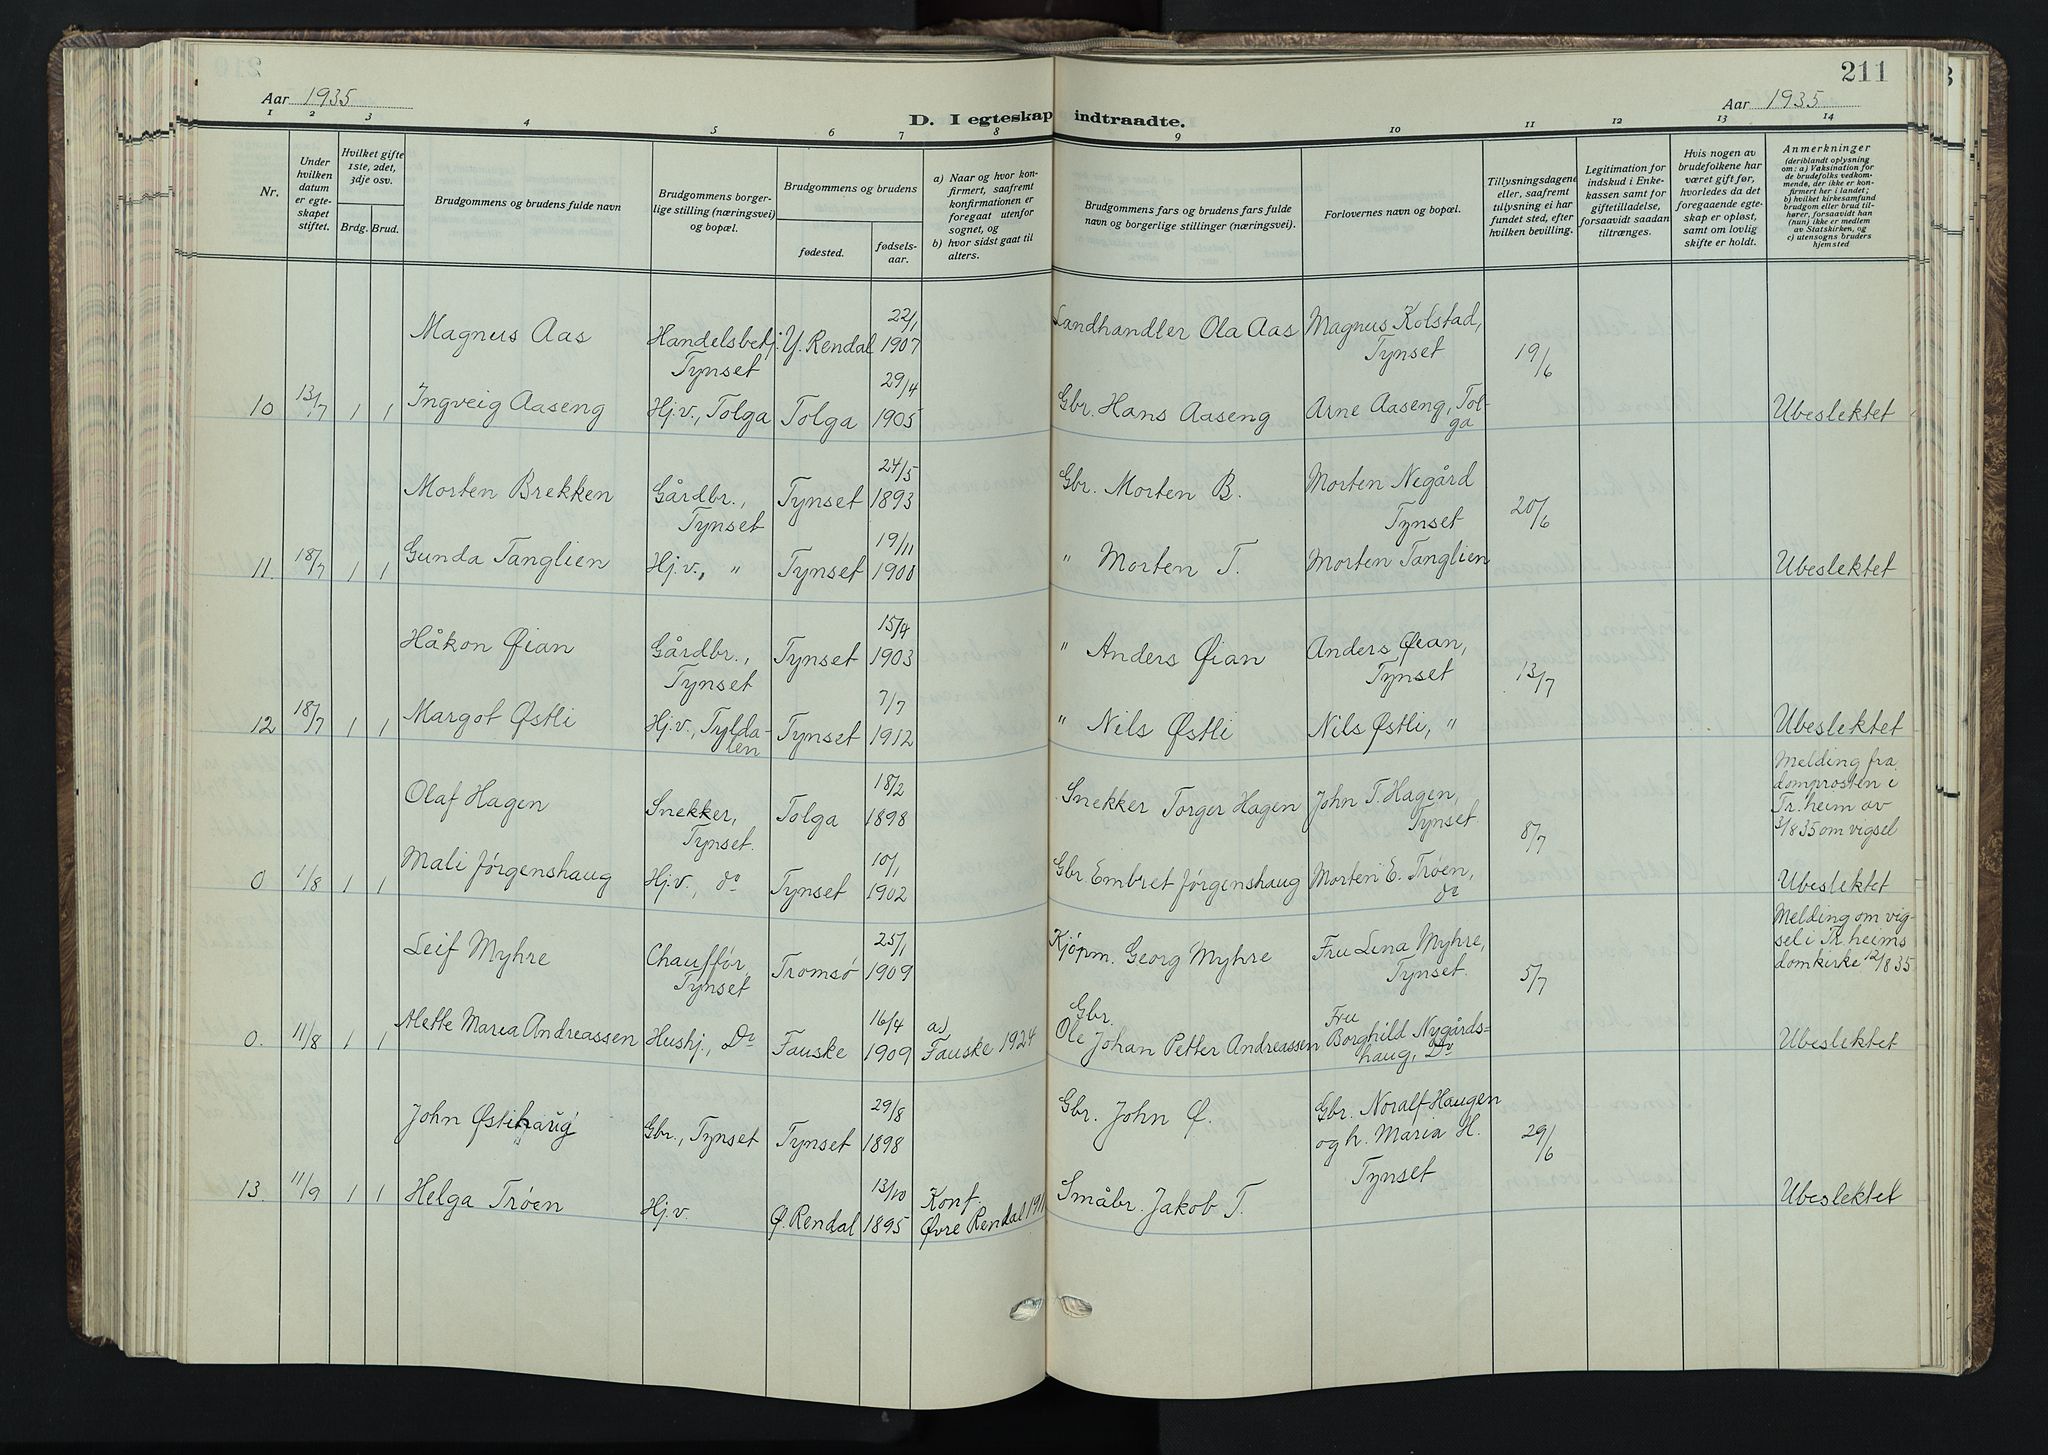 211
Aar 1935
Aar 1935
D. I egteskap indtraadte.
1 2 3 4 5 6 7 8 9 10 11 12 13 14
Nr.
Under hvilken datum er egteskapet stiftet.
Hvilket gifte 1ste, 2det, 3dje osv.
Brdg. Brud.
Brudgommens og brudens fulde navn
Brudgommens borgerlige stilling (næringsvei) og bopæl.
Brudgommens og brudens
fødested.
fødselsaar.
a) Naar og hvor konfirmert, saafremt konfirmationen er foregaat utenfor sognet, og
b) hvor sidst gaat til alters.
Brudgommens fars og brudens fars fulde navn og borgerlige stillinger (næringsvei).
Forlovernes navn og bopæl.
Tillysningsdagene eller, saafremt tillysning ei har fundet sted, efter hvilken bevilling.
Legitimation for indskud i Enkekassen samt for giftetilladelse, forsaavidt saadan tiltrænges.
Hvis nogen av brudefolkene har været gift før, hvorledes da det foregaaende egteskap er opløst, samt om lovlig skifte er holdt.
Anmerkninger
(deriblandt oplysning om: a) Vaksination for de brudefolks vedkommende, der ikke er konfirmert her i landet; b) hvilket kirkesamfund brudgom eller brud tilhører, forsaavidt han (hun) ikke er medlem av Statskirken, og c) utensogns bruders hjemsted
Magnus Aas Handelsbetj. Tynset Y. Rendal 22/1 1907 Landhandler Ola Aas Magnus Kolstad, Tynset 19/6
10 13/7 1 1 Ingveig Aaseng Hj.v., Tolga Tolga 29/4 1905 Gbr. Hans Aaseng Arne Aaseng, Tolga Ubeslektet
Morten Brekken Gårdbr., Tynset Tynset 24/5 1893 Gbr. Morten B. Morten Negård Tynset 20/6
11. 18/7 1 1 Gunda Tanglien Hj.v., " Tynset 19/11 1900 " Morten T. Morten Tanglien Ubeslektet
Håkon Øian Gårdbr., Tynset Tynset 15/4 1903 " Anders Øian Anders Øian, Tynset 13/7
12 18/7 1 1 Margot Østli Hj.v., Tyldalen Tynset 7/7 1912 " Nils Østli Nils Østli, " Ubeslektet
Olaf Hagen Snekker, Tynset. Tolga 18/2 1898 Snekker Torger Hagen John T. Hagen, Tynset 8/7 Melding fra domprosten i Tr.heim av 3/8 35 om vigsel
0 1/8 1 1 Mali Jørgenshaug Hj.v., do Tynset 10/1 1902 Gbr. Embret Jørgenshaug Morten E. Trøen, do Ubeslektet
Leif Myhre Chauffør, Tynset Tromsø 25/1 1909 Kjøpm. Georg Myhre Fru Lina Myhre, Tynset. 5/7 Melding om vigsel i Tr.heims domkirke 12/8 35
0. 11/8 1 1 Alette Maria Andreassen Hushj., Do Fauske 16/4 1909 a) Fauske 1924 Gbr. Ole Johan Petter Andreassen Fru Borghild Nygårdshaug, Do Ubeslektet
John Østihaug Gbr., Tynset Tynset 29/8 1898 Gbr. John Ø. Gbr. Noralf Haugen og h. Maria H. Tynset 29/6
13. 11/9 1 1 Helga Trøen Hj.v. Ø. Rendal 13/10 1895 Konf. Øvre Rendal Småbr. Jakob T. Ubeslektet